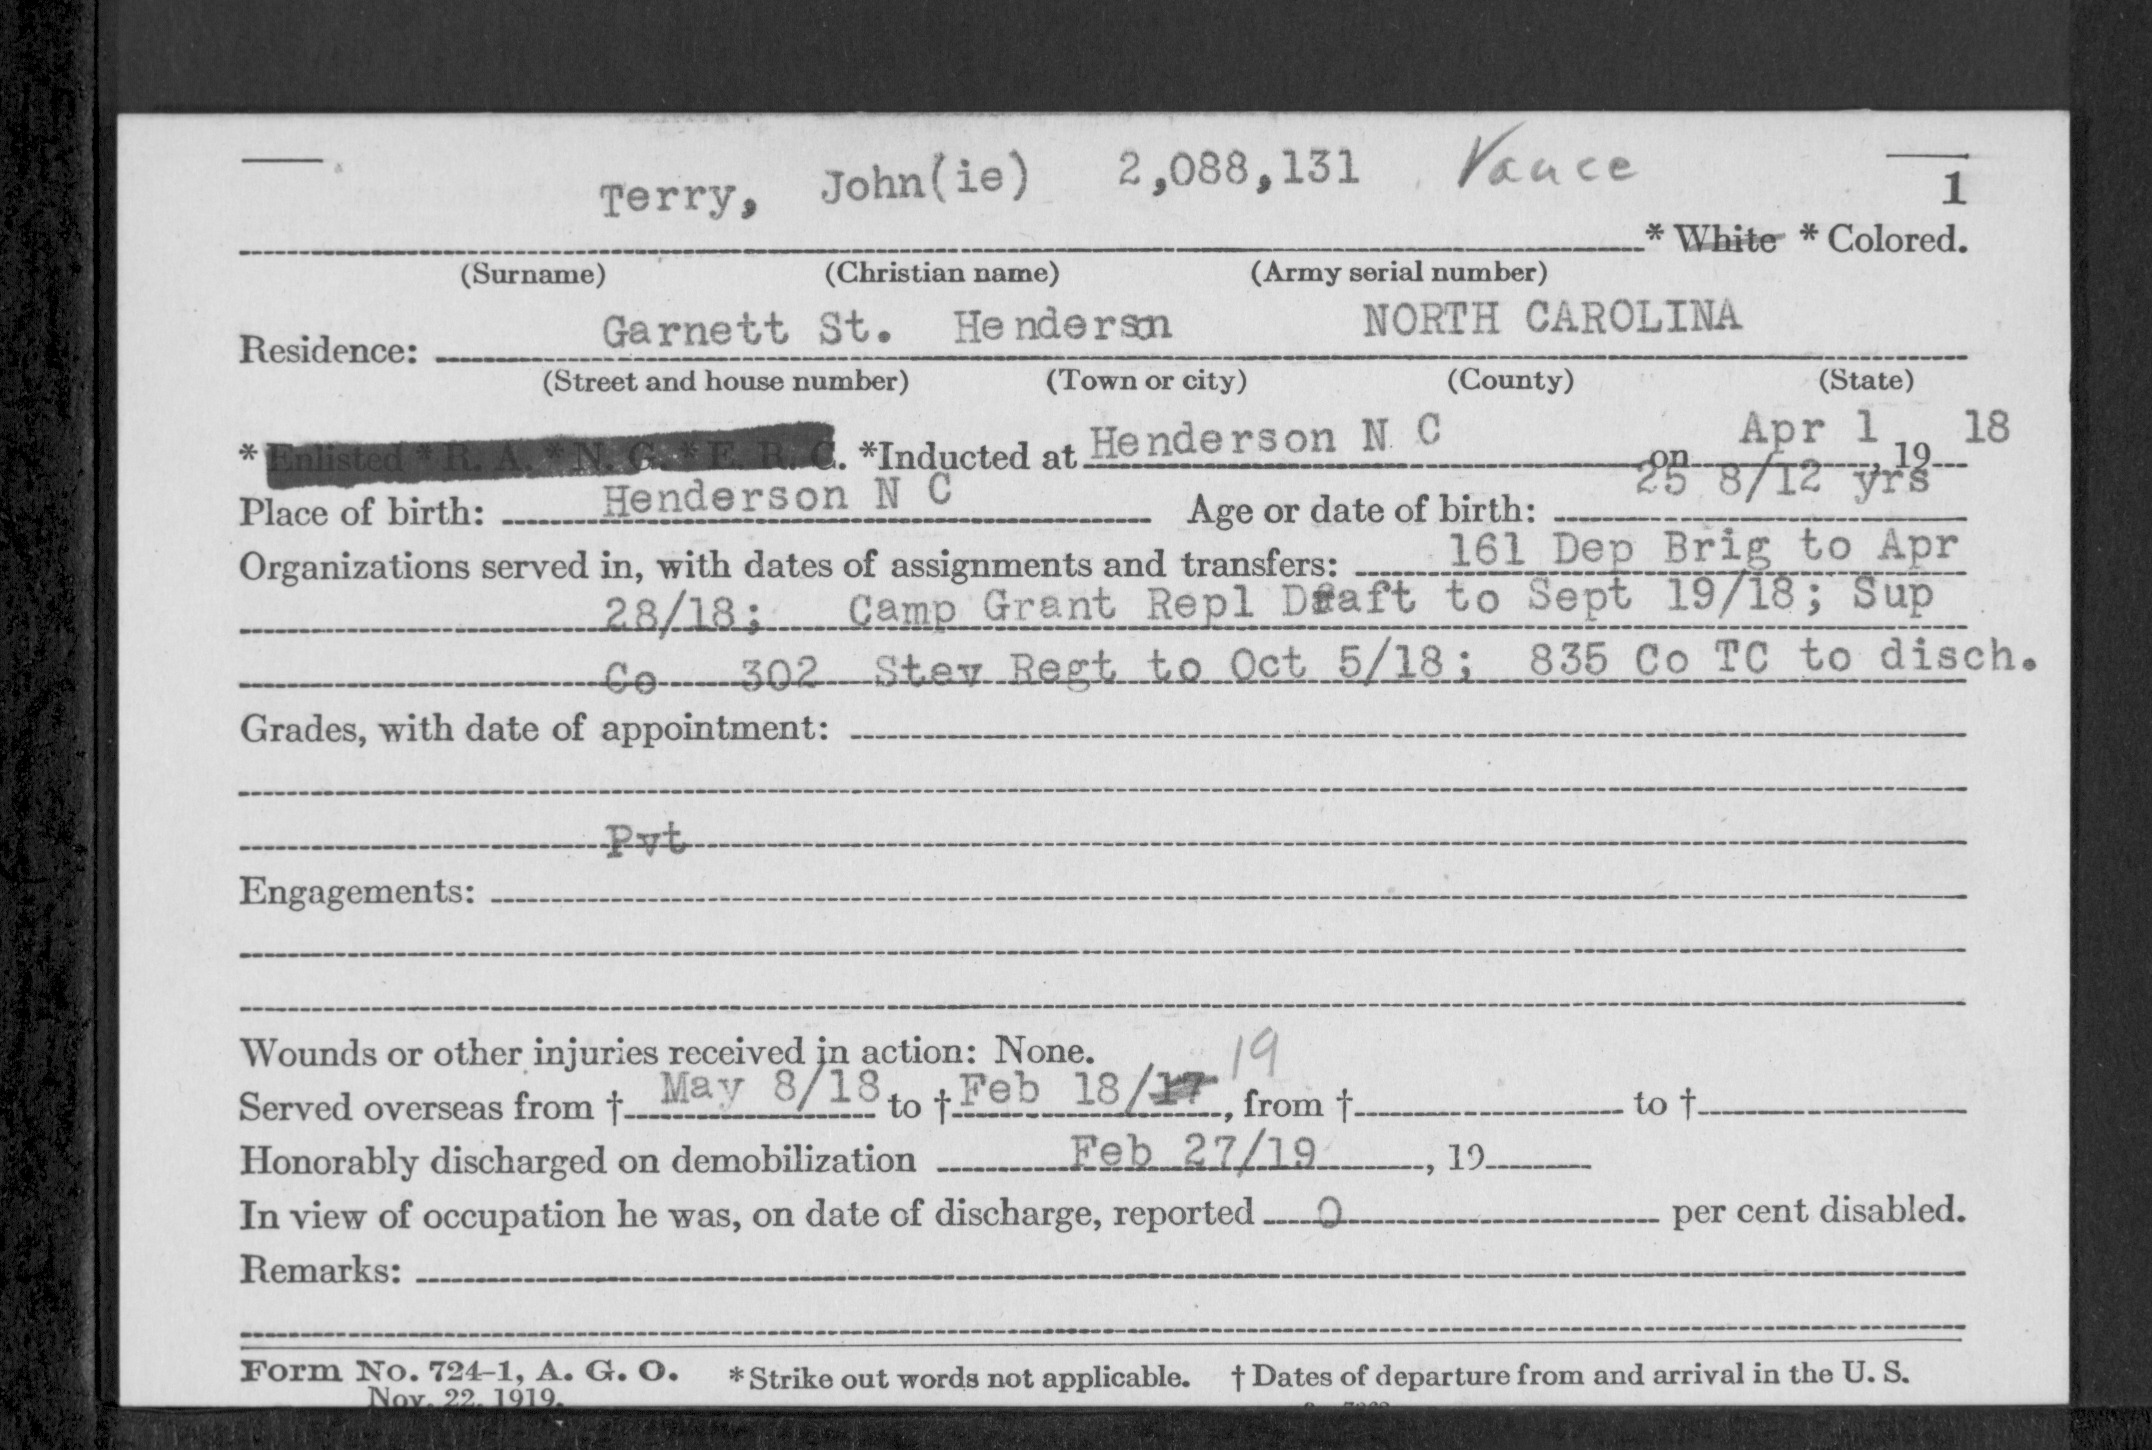 Terry, John(ie) 2,088,131 Vance 1
* White * Colored.
(Surname) (Christian name) (Army serial number)
Residence: Garnett St. Henderson NORTH CAROLINA
(Street and house number) (Town or city) (County) (State)
* Enlisted * R. A. * N. G. * E. R. C. *Inducted at Henderson N C on Apr 1, 19 18
Place of birth: Henderson N C Age or date of birth: 25 8/12 yrs
Organizations served in, with dates of assignments and transfers: 161 Dep Brig to Apr
28/18; Camp Grant Repl Draft to Sept 19/18; Sup
Co 302 Stev Regt to Oct 5/18; 835 Co TC to disch.
Grades, with date of appointment:
Pvt
Engagements:
Wounds or other injuries received in action: None.
Served overseas from † May 8/18 to † Feb 18/17 19, from † to †
Honorably discharged on demobilization Feb 27/19, 19
In view of occupation he was, on date of discharge, reported 0 per cent disabled.
Remarks:
Form No. 724-1, A. G. O. * Strike out words not applicable. † Dates of departure from and arrival in the U. S.
Nov. 22, 1919.